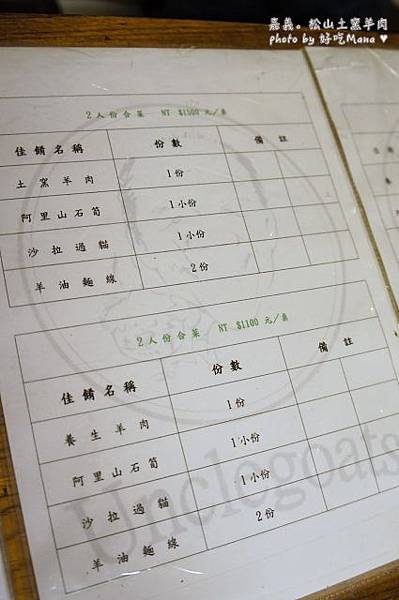 嘉義。松山土窯羊肉
photo by 好吃Mana ♥
2人份合菜 NT $1100 元/桌
佳餚名稱 份數 備註
土窯羊肉 1份
阿里山石筍 1小份
沙拉過貓 1小份
羊油麵線 2份
2人份合菜 NT $1100 元/桌
佳餚名稱 份數 備註
養生羊肉 1份
阿里山石筍 1小份
沙拉過貓 1小份
羊油麵線 2份
Unclegoats